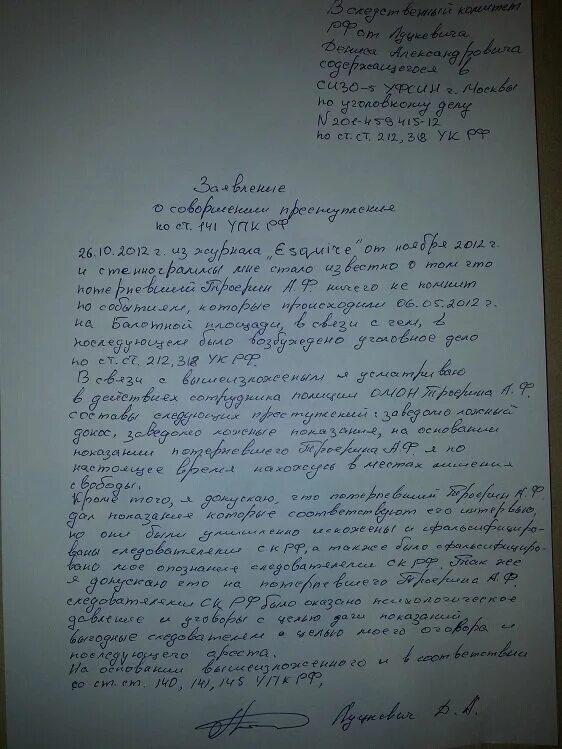 В следственный комитет
РФ от Луцкевича
Дениса Александровича
содержащегося в
СИЗО-5 УФСИН г. Москвы
по уголовному делу
N 201-459415-12
по ст. ст. 212, 318 УК РФ
Заявление
о совершении преступления
по ст. 141 УПК РФ
26.10.2012 г. из журнала „Esquire" от ноября 2012 г.
и стеннограммы мне стало известно о том что
потерпевший Троерин А.Ф. ничего не помнит
по событиям, которые происходили 06.05.2012 г.
на Болотной площади, в связи с чем, в
последующем было возбуждено уголовное дело
по ст. ст. 212, 318 УК РФ.
В связи с вышеизложеным я усматриваю
в действиях сотрудника полиции ОМОН Троерина А.Ф.
составы следующих преступлений: заведомо ложный
донос, заведомо ложные показания, на основании
показании потерпевшего Троерина А.Ф. я по
настоящее время нахожусь в местах лишения
свободы.
Кроме того, я допускаю, что потерпевший Троерин А.Ф.
дал показания которые соответствуют его интервью,
но они были умышленно искажены и сфальсифициро-
ваны следователями СК РФ, а также было сфальсифициро-
вано мое опознание следователями СК РФ. Так же
я допускаю что на потерпевшего Троерина А.Ф.
следователями СК РФ было оказано психологическое
давление и уговоры с целью дачи показаний
выгодные следователям с целью моего оговора и
последующего ареста.
На основании вышеизложенного и в соответствии
со ст. ст. 140, 141, 145 УПК РФ,
Луцкевич Д. А.